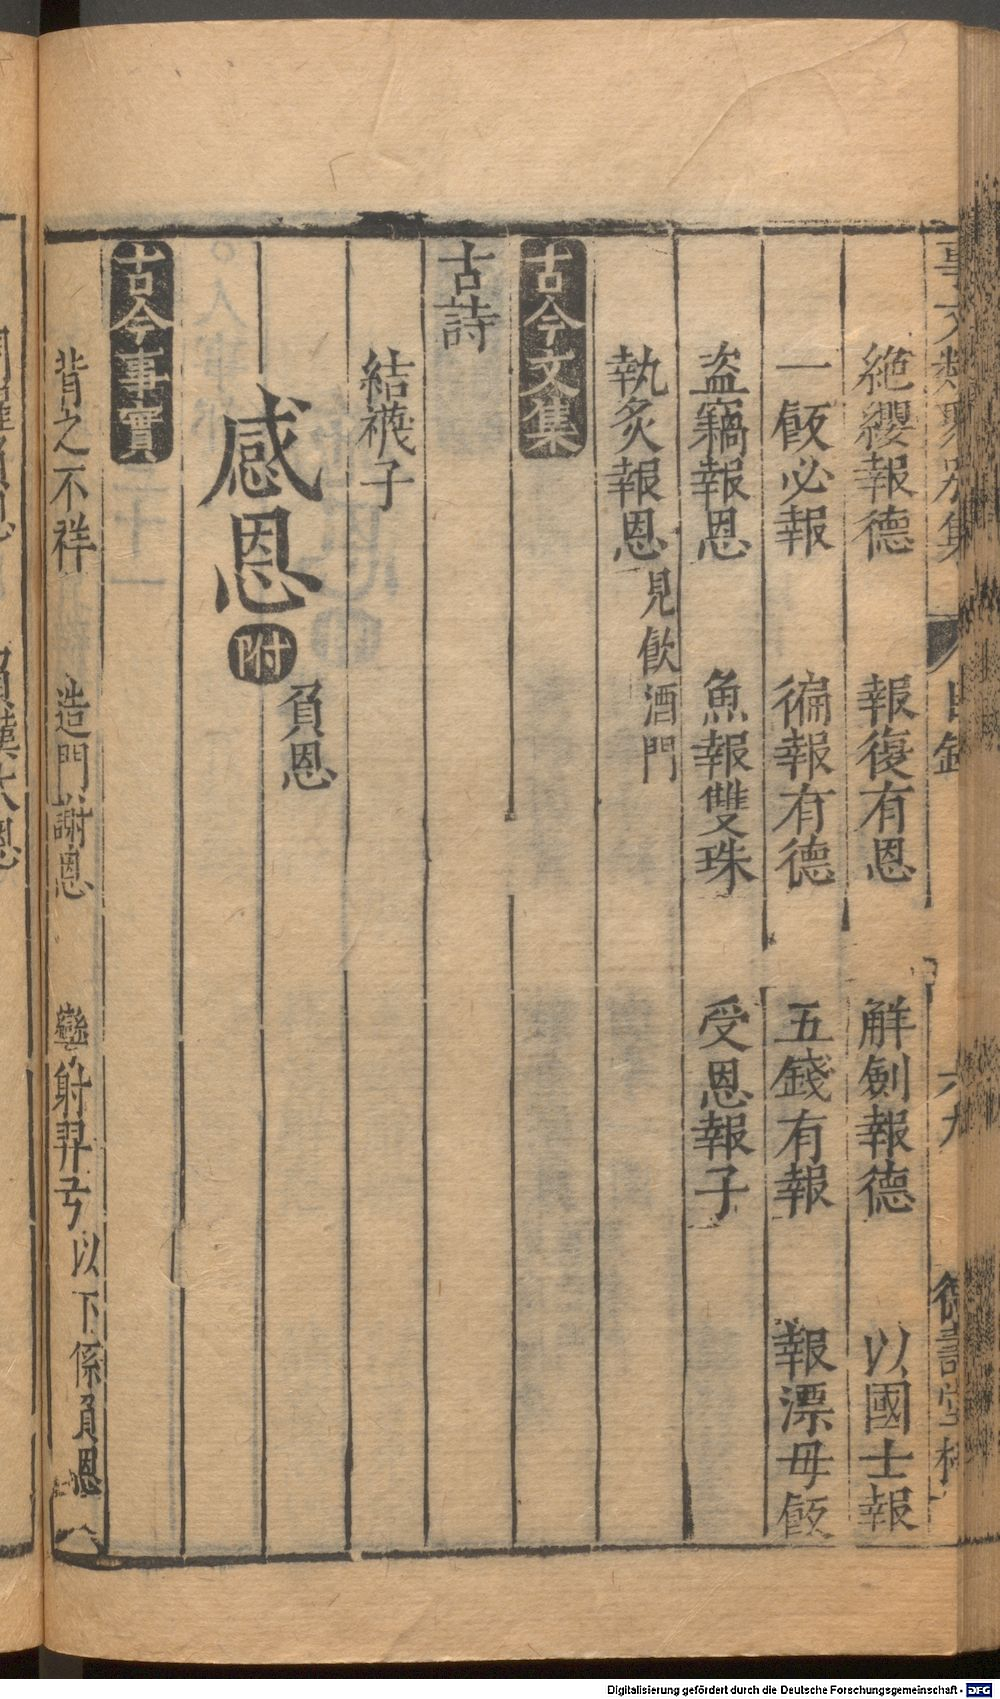 事文類聚別集 目錄 六九 德壽堂梓
絶纓報德 報復有恩 觧劍報德 以國士報
一飯必報 徧報有德 五錢有報 報漂母飯
盗竊報恩 魚報雙珠 受恩報子
執炙報恩 見飲酒門
古今文集
古詩
結襪子
感恩 附 負恩
古今事實
背之不祥 造門謝恩 彎射羿弓 以下係負恩
Digitalisierung gefördert durch die Deutsche Forschungsgemeinschaft - DFG